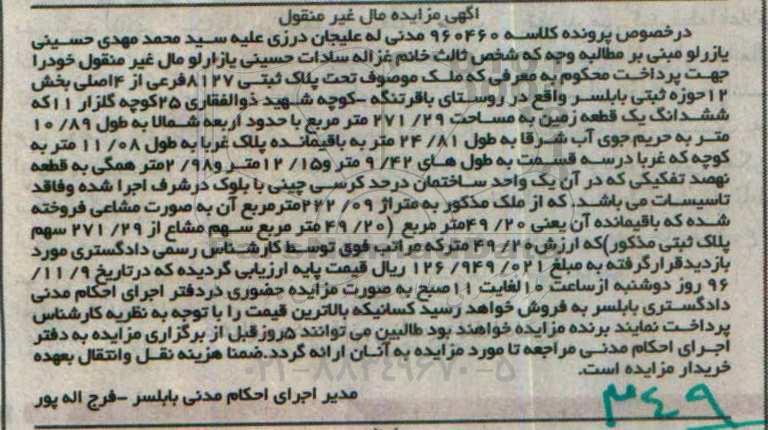 آگهی مزایده مال غیر منقول
درخصوص پرونده کلاسه ۹۶۰۴۶۰ مدنی له علیجان درزی علیه سید محمد مهدی حسینی
یازرلو مبنی بر مطالبه وجه که شخص ثالث خانم غزاله سادات حسینی یازارلو مال غیر منقول خودرا
جهت پرداخت محکوم به معرفی که ملک موصوف تحت پلاک ثبتی ۸۱۲۷فرعی از ۴اصلی بخش
۱۲حوزه ثبتی بابلسر واقع در روستای باقرتنگه -کوچه شهید ذوالفقاری ۲۵کوچه گلزار ۱۱که
ششدانگ یک قطعه زمین به مساحت ۲۷۱/۲۹ متر مربع با حدود اربعه شمالا به طول ۱۰/۸۹
متر به حریم جوی آب شرقا به طول ۲۴/۸۱ متر به باقیمانده پلاک غربا به طول ۱۱/۰۸ متر به
کوچه که غربا درسه قسمت به طول های ۹/۴۲ متر و۱۲/۱۵متر و۲/۹۸متر همگی به قطعه
نهصد تفکیکی که در آن یک واحد ساختمان درحد کرسی چینی با بلوک درشرف اجرا شده وفاقد
تاسیسات می باشد، که از ملک مذکور به متراژ ۲۲۲/۰۹مترمربع آن به صورت مشاعی فروخته
شده که باقیمانده آن یعنی ۴۹/۲۰متر مربع (۴۹/۲۰ متر مربع سهم مشاع از ۲۷۱/۲۹ سهم
پلاک ثبتی مذکور)که ارزش۴۹/۲۰ مترکه مراتب فوق توسط کارشناس رسمی دادگستری مورد
بازدیدقرارگرفته به مبلغ ۱۲۶/۹۴۹/۰۲۱ ریال قیمت پایه ارزیابی گردیده که درتاریخ ۱۱/۹/
۹۶ روز دوشنبه ازساعت ۱۰لغایت ۱۱صبح به صورت مزایده حضوری دردفتر اجرای احکام مدنی
دادگستری بابلسر به فروش خواهد رسید کسانیکه بالاترین قیمت را با توجه به نظریه کارشناس
پرداخت نمایند برنده مزایده خواهند بود طالبین می توانند ۵روزقبل از برگزاری مزایده به دفتر
اجرای احکام مدنی مراجعه تا مورد مزایده به آنان ارائه گردد.ضمنا هزینه نقل وانتقال بعهده
خریدار مزایده است.
۰۲۱-۸۸۳۴۹۶۷۰-۵
مدیر اجرای احکام مدنی بابلسر -فرج اله پور
۳۴۹